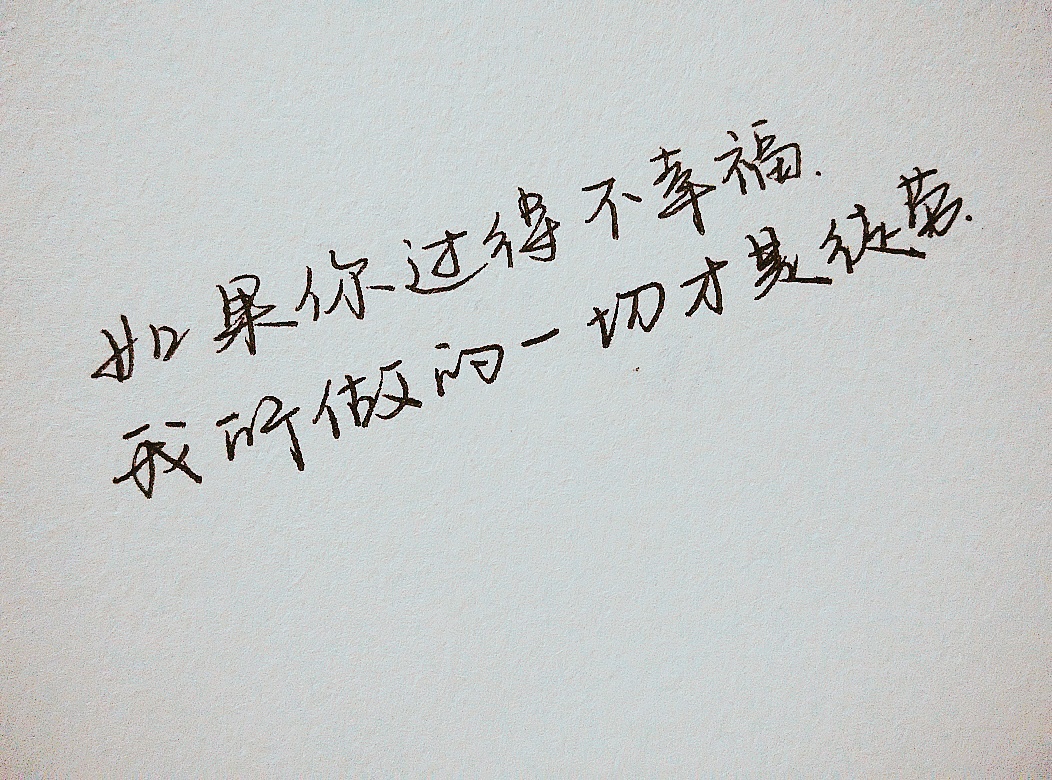 如果你过得不幸福.
我所做的一切才是徒劳.